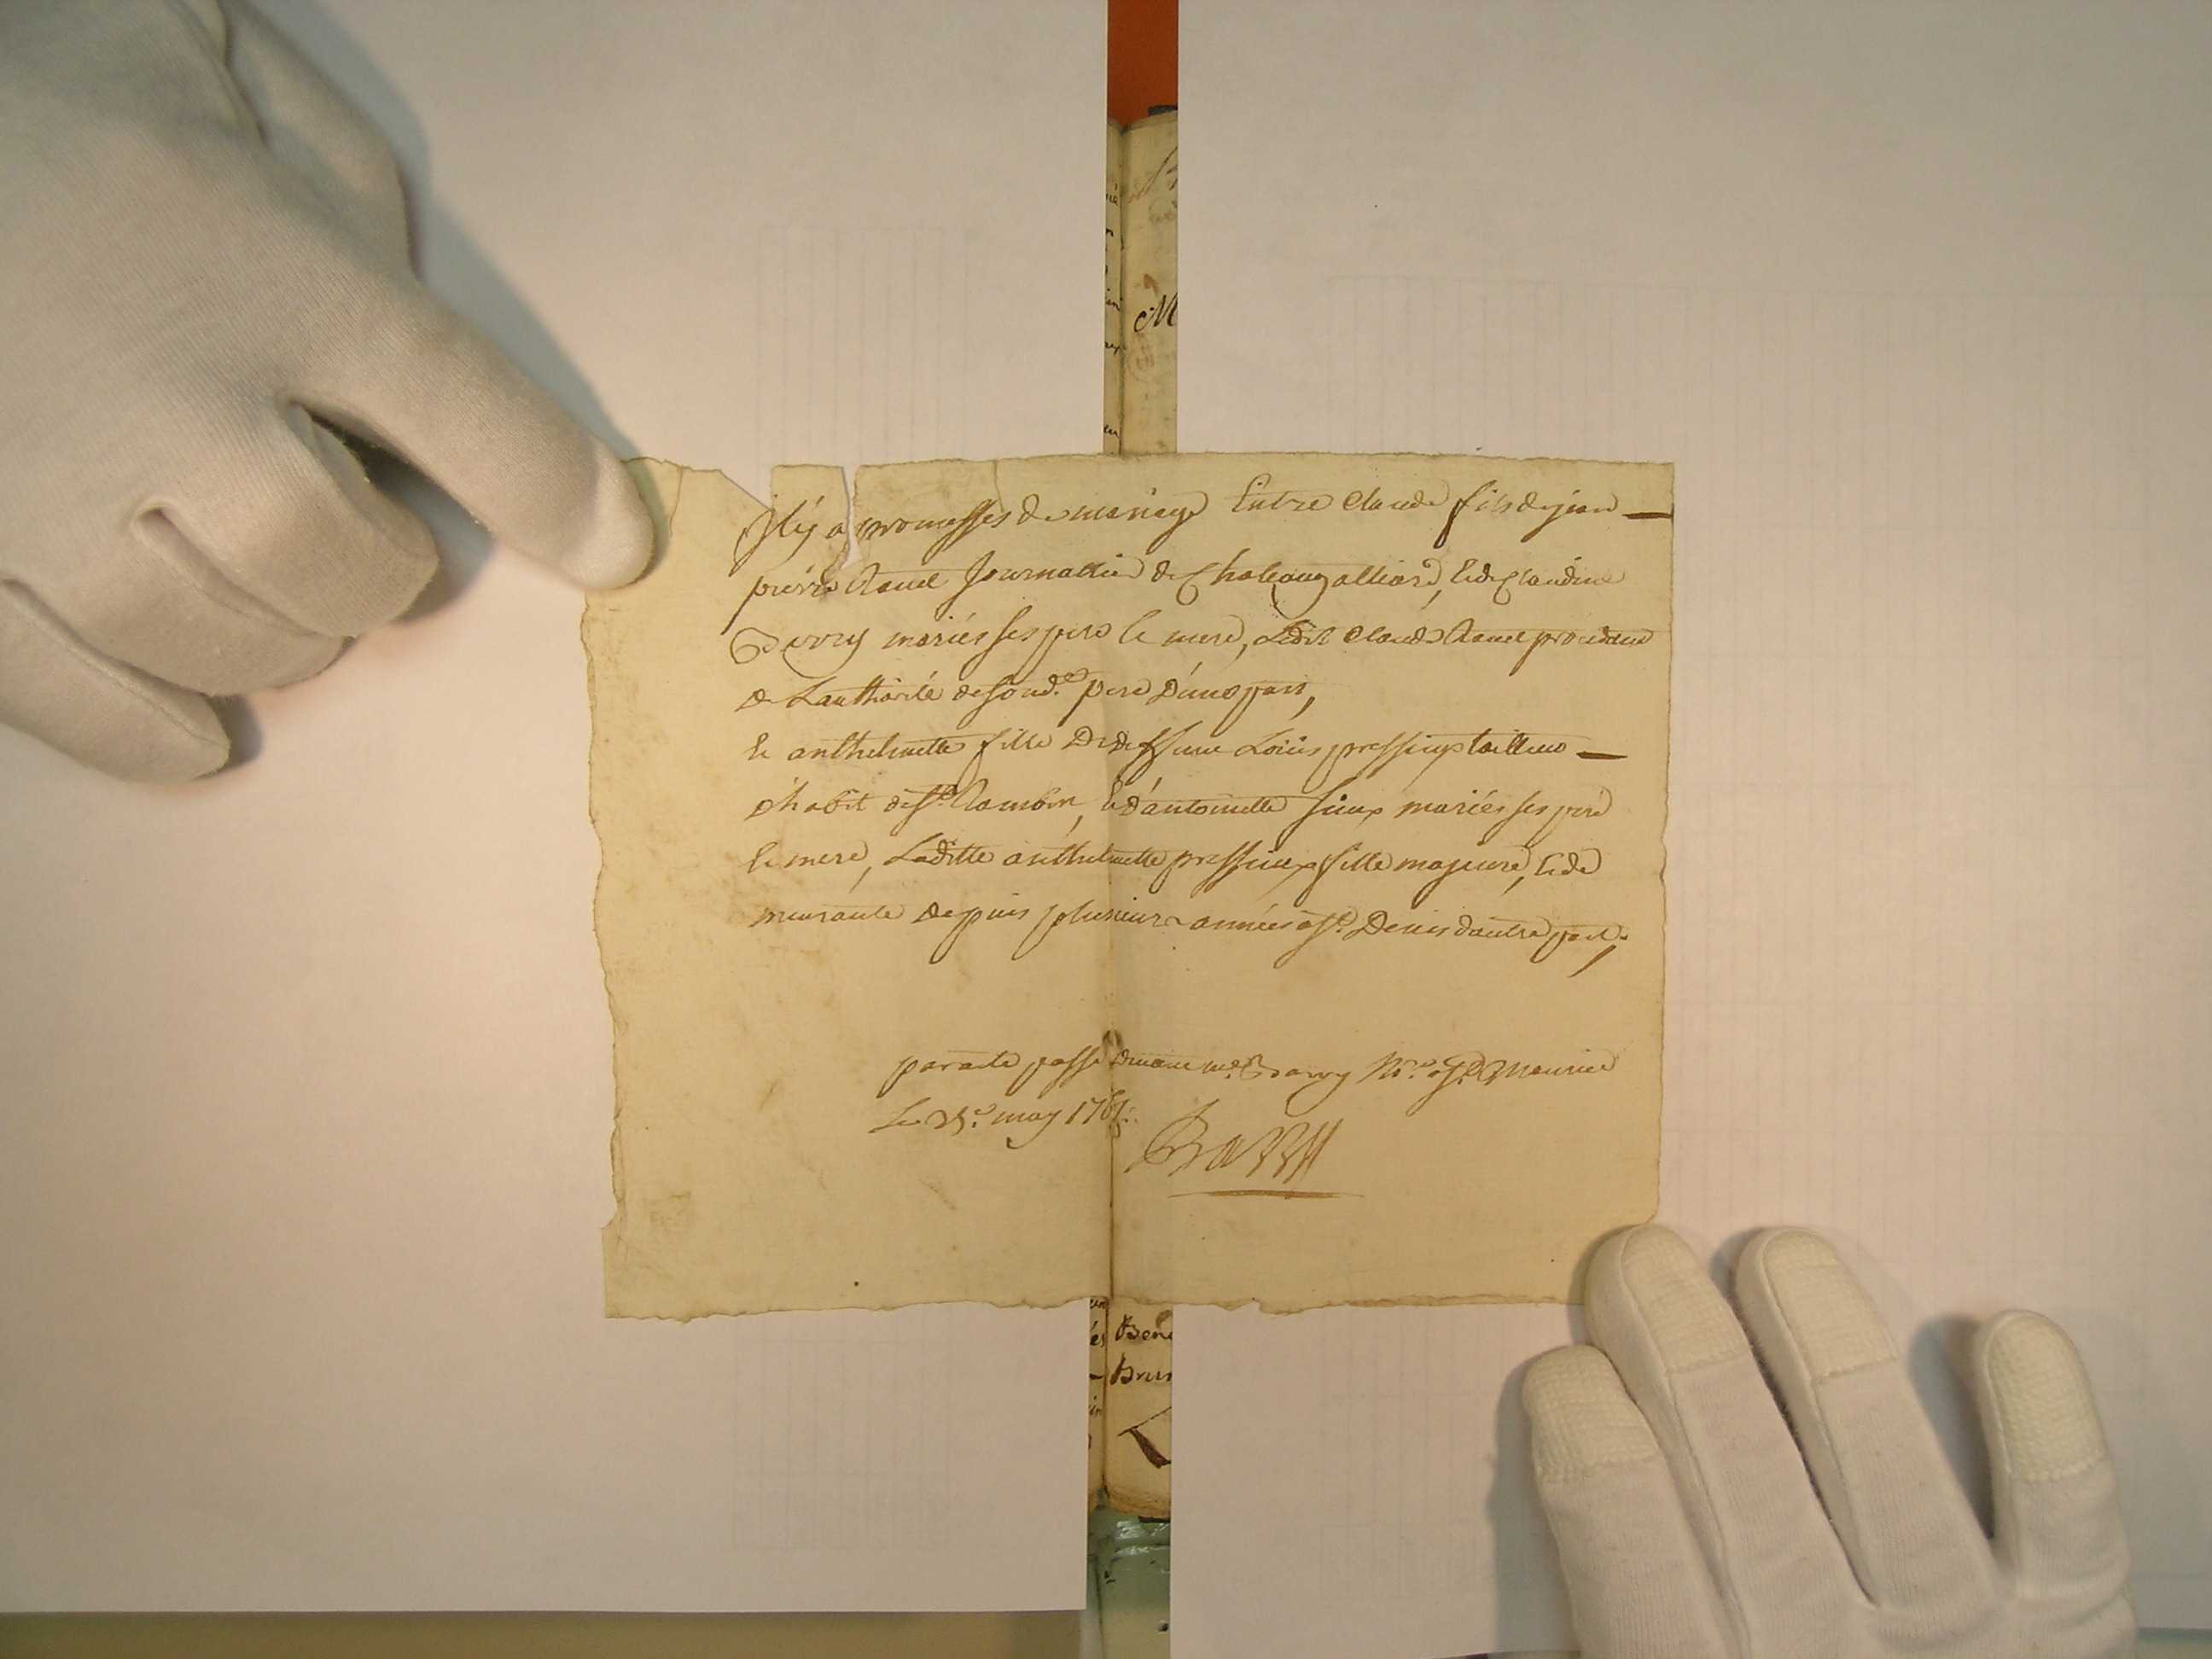 Il y a promesses de mariage Entre Claude fils de jean
pierre Ravel Journallier de Chateaugalliard, & de Claudine
mariés ses pere & mere, Ledit Claude Ravel procedant
de Lauthorité de sond.^t pere D'une part,
& anthelmette fille De deffunt Loüis pressieux tailleur
d'habit de S.^t Rambert, & d'antoinette mariés ses pere
& mere, Laditte anthelmette pressieux fille majeure, & de
meurante depuis plusieurs années à S.^t Denis d'autre part,
par acte passé devant m.^e N.^re à S.^t Maurice
Le may
M
Bene
Brun